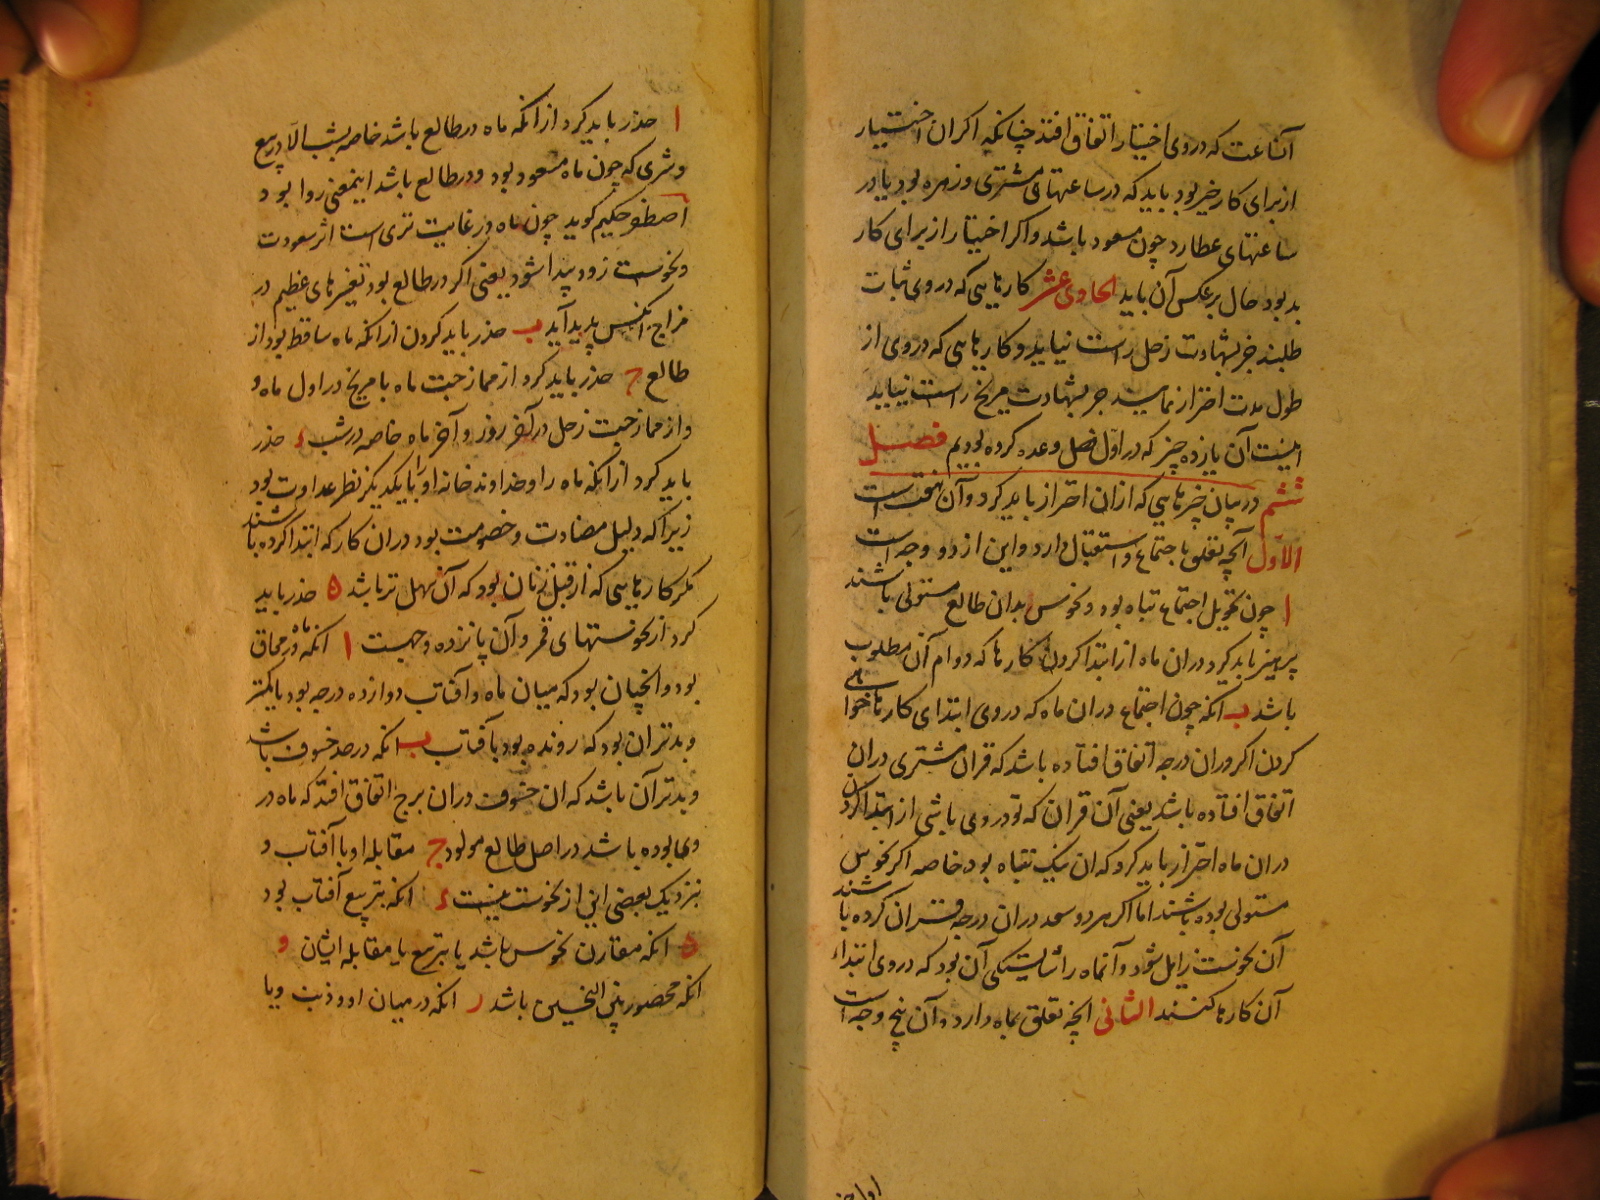 آنساعت که در وی اختیار اتفاق افتد چنانکه اکر ان اختیار
از برای کار خیر بود باید که در ساعتهای مشتری و زهره بود یا در
ساعتهای عطارد چون مسعود باشد و اکر اختیار از برای کار
بد بود حال بر عکس آن باید الحادی عشر کارهایی که در وی ثبات
طلبند جز بشهادت زحل راست نیاید و کارهایی که در وی از
طول مدت احتراز نمایند جز بشهادت مریخ راست نیاید
اینست آن یازده چیز که در اول فصل وعده کرده بودیم فصل
ششم در بیان چیزهایی که از ان احتراز باید کرد و آن هفت است
الاول آنچه تعلق باجتماع و استقبال دارد و این از دو وجه است
ا چون تحویل اجتماع تباه بود و نحوس بدان طالع مستولی باشند
پرهیز باید کرد دران ماه از ابتدا کردن کارها که دوام آن مطلوب
باشد ب انکه چون اجتماع دران ماه که در وی ابتدای کارها خواهی
کردن اکر دران درجه اتفاق افتاده باشد که قران مشتری دران
اتفاق افتاده باشد یعنی آن قران که تو در وی باشی از ابتدا کردن
دران ماه احتراز باید کرد که ان نیک تباه بود خاصه اکر نحوس
مستولی بوده باشند اما اکر هر دو سعد دران درجه قران کرده باشند
آن نحوست زایل شود و آنماه را شایستکی آن بود که در وی ابتداء
آن کارها کنند الثانی انچه تعلق بماه دارد و آن پنج وجه است
ا حذر باید کرد از انکه ماه در طالع باشد خاصه بشب الا در بیع
و شری که چون ماه مسعود بود و در طالع باشد اینمعنی روا بود و
حکیم کوید چون ماه در غایت تری است اثر سعودت
و نحوست زود پیدا شود یعنی اکر در طالع بود تغیرهای عظیم در
مزاج انکس پدید آید ب حذر باید کردن از انکه ماه ساقط بود از
طالع ج حذر باید کرد از ممازجت ماه با مریخ در اول ماه و
و از ممازجت زحل در آخر روز و آخر ماه خاصه در شب د حذر
باید کرد از انکه ماه را و خداوند خانه او را با یکدیکر نظر عداوت بود
زیرا که دلیل مضادت و خصومت بود دران کار که ابتدا کرده باشند
مکر کارهایی که از قبل زنان بود که آن سهل تر باشد ه حذر باید
کرد از نحوستهای قمر و آن پانزده وجهست ا انکه ماه در محاق
بود و انچنان بود که میان ماه و آفتاب دوازده درجه بود یا کمتر
و بدتر ان بود که رونده بود بآفتاب ب انکه در حد خسوف باشد
و بدتر آن باشد که ان خسوف دران برج اتفاق افتد که ماه در
وی بوده باشد در اصل طالع مولود ج مقابله او با آفتاب و
بنزدیک بعضی این از نحوست نیست د انکه بتربیع آفتاب بود
ه انکه مقارن نحوس باشد یا بتربیع یا مقابله ایشان و
انکه محصور بین النحسین باشد ز انکه در میان او و ذنب و یا